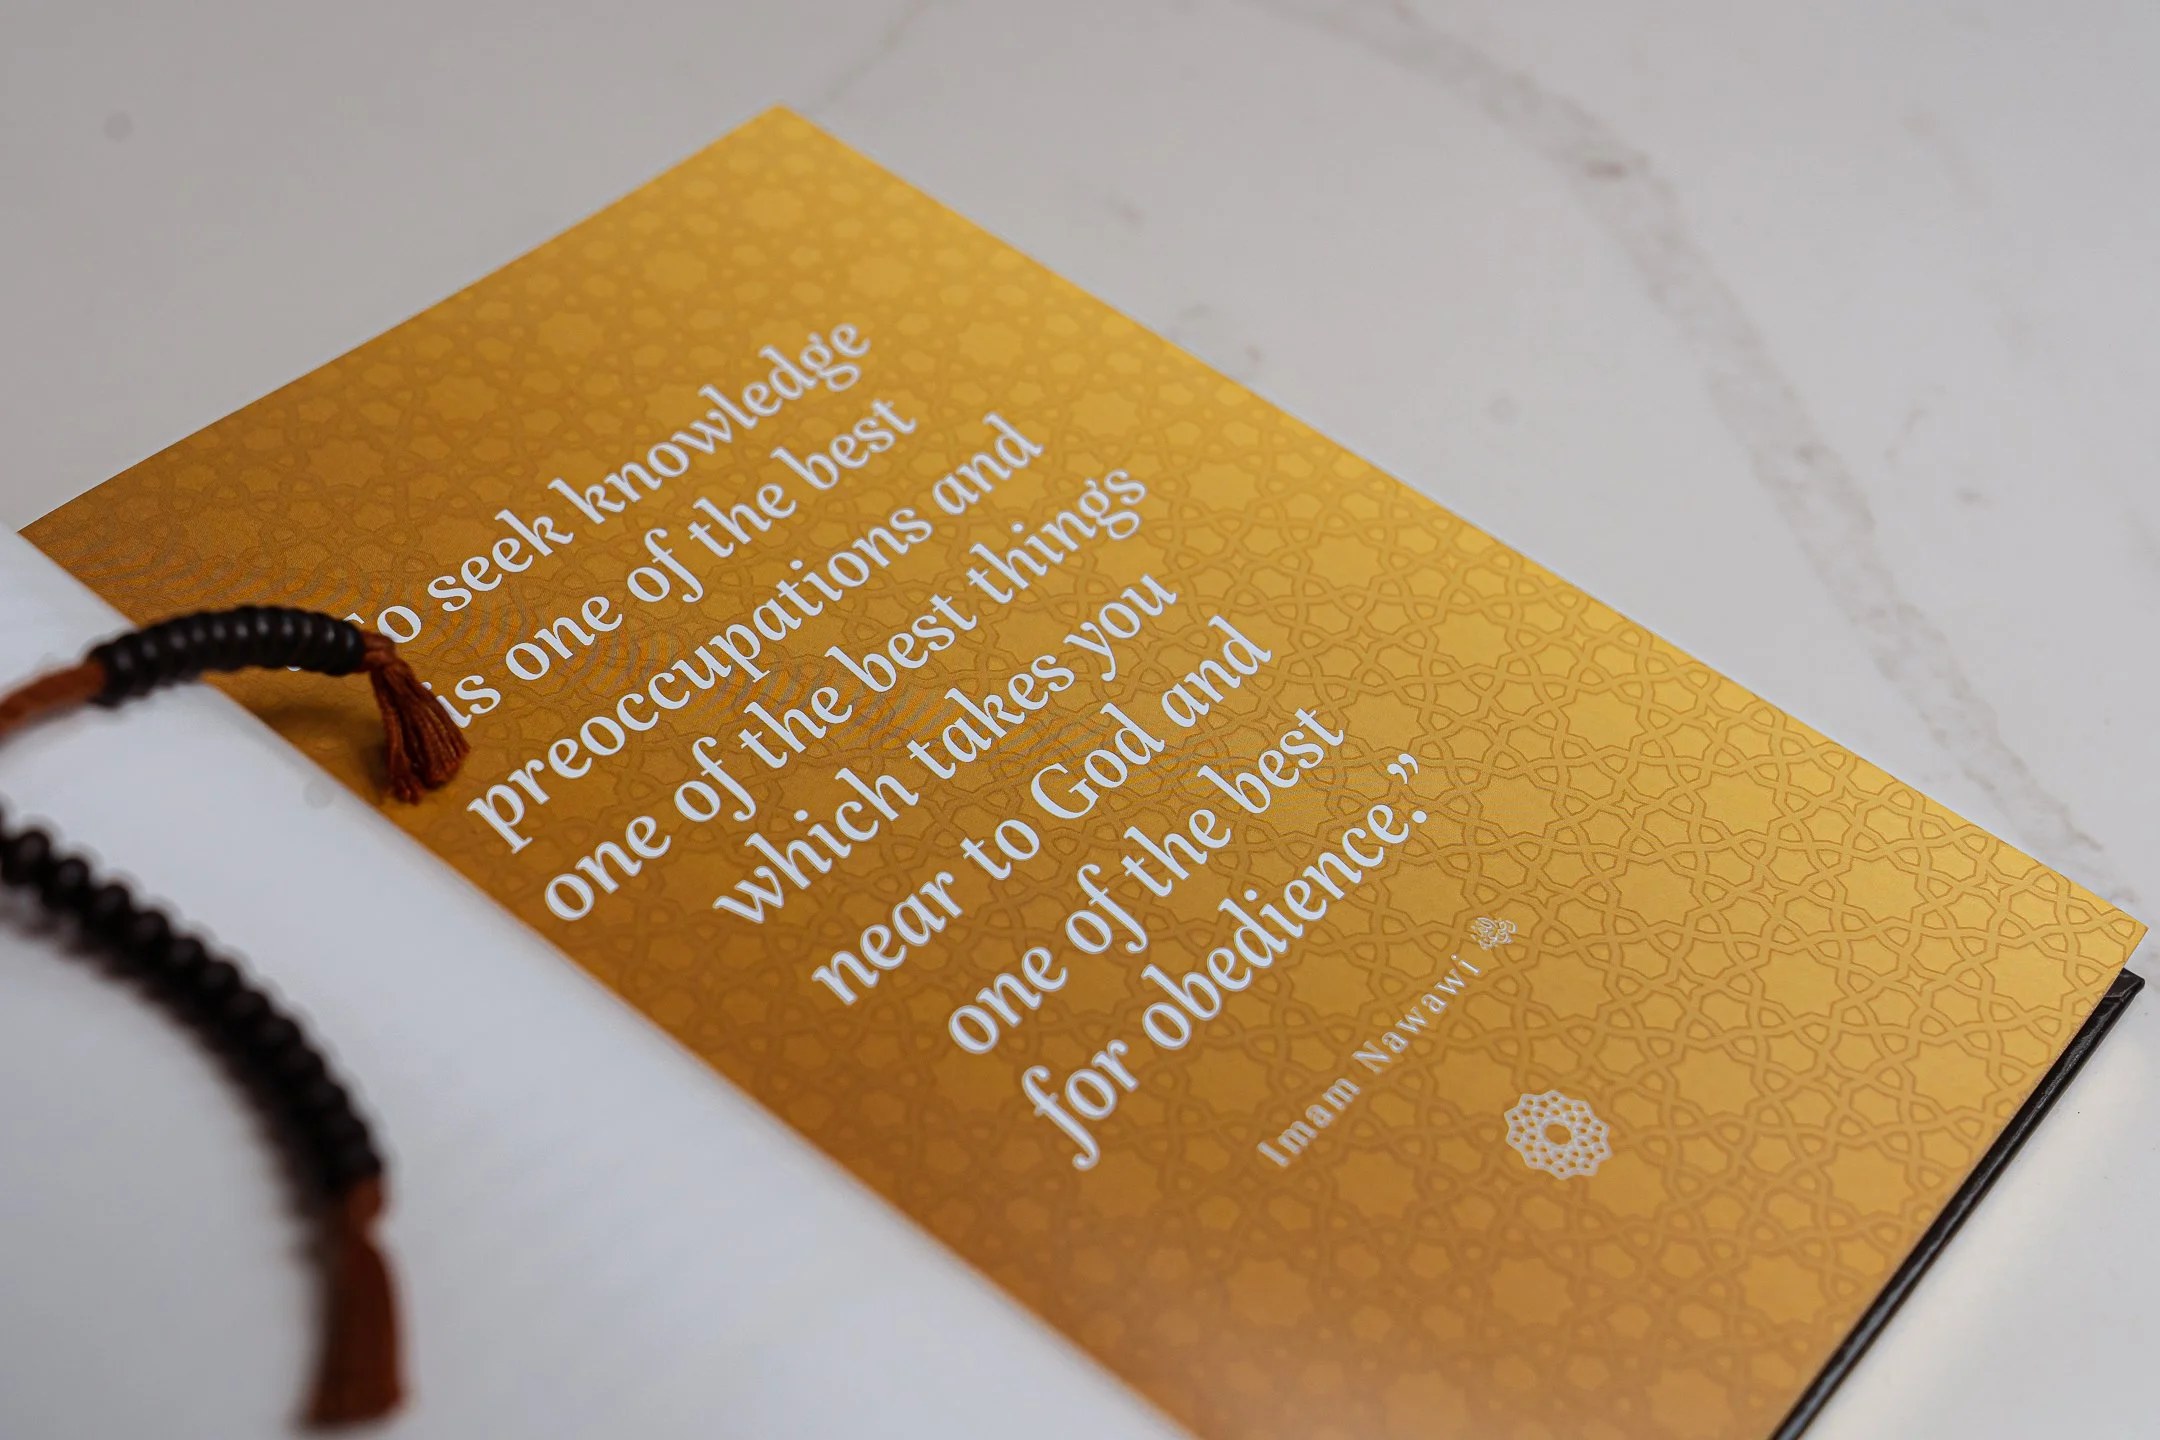 To seek knowledge
is one of the best
preoccupations and
one of the best things
which takes you
near to God and
one of the best
for obedience.”
Imam Nawawi